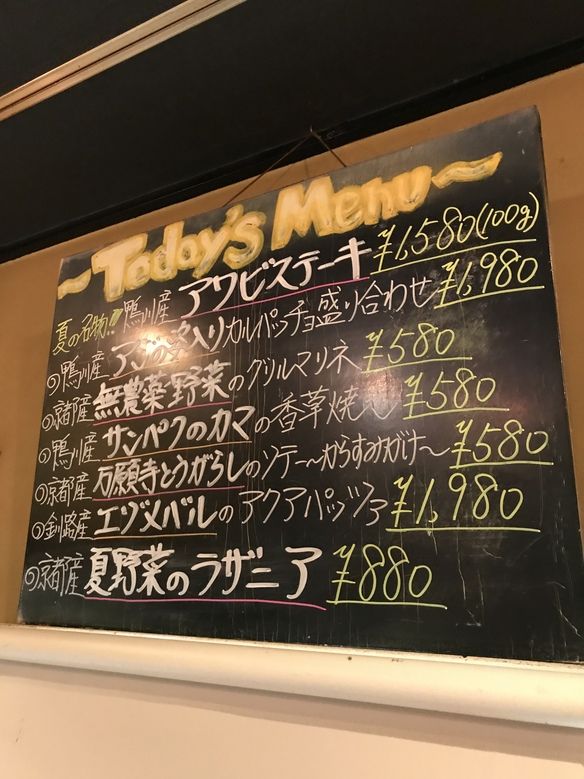 ~Today's Menu~
夏の名物!!! 鴨川産 アワビステーキ ¥1,580(100g)
鴨川産 入りカルパッチョ盛り合わせ ¥1,980
京都産 無農薬野菜のグリルマリネ ¥580
鴨川産 サンペクのカマの香草焼 ¥580
京都産 万願寺とうがらしのソテー~からすみがけ~ ¥580
釧路産 エゾメバルのアクアパッツァ ¥1,980
京都産 夏野菜のラザニア ¥880